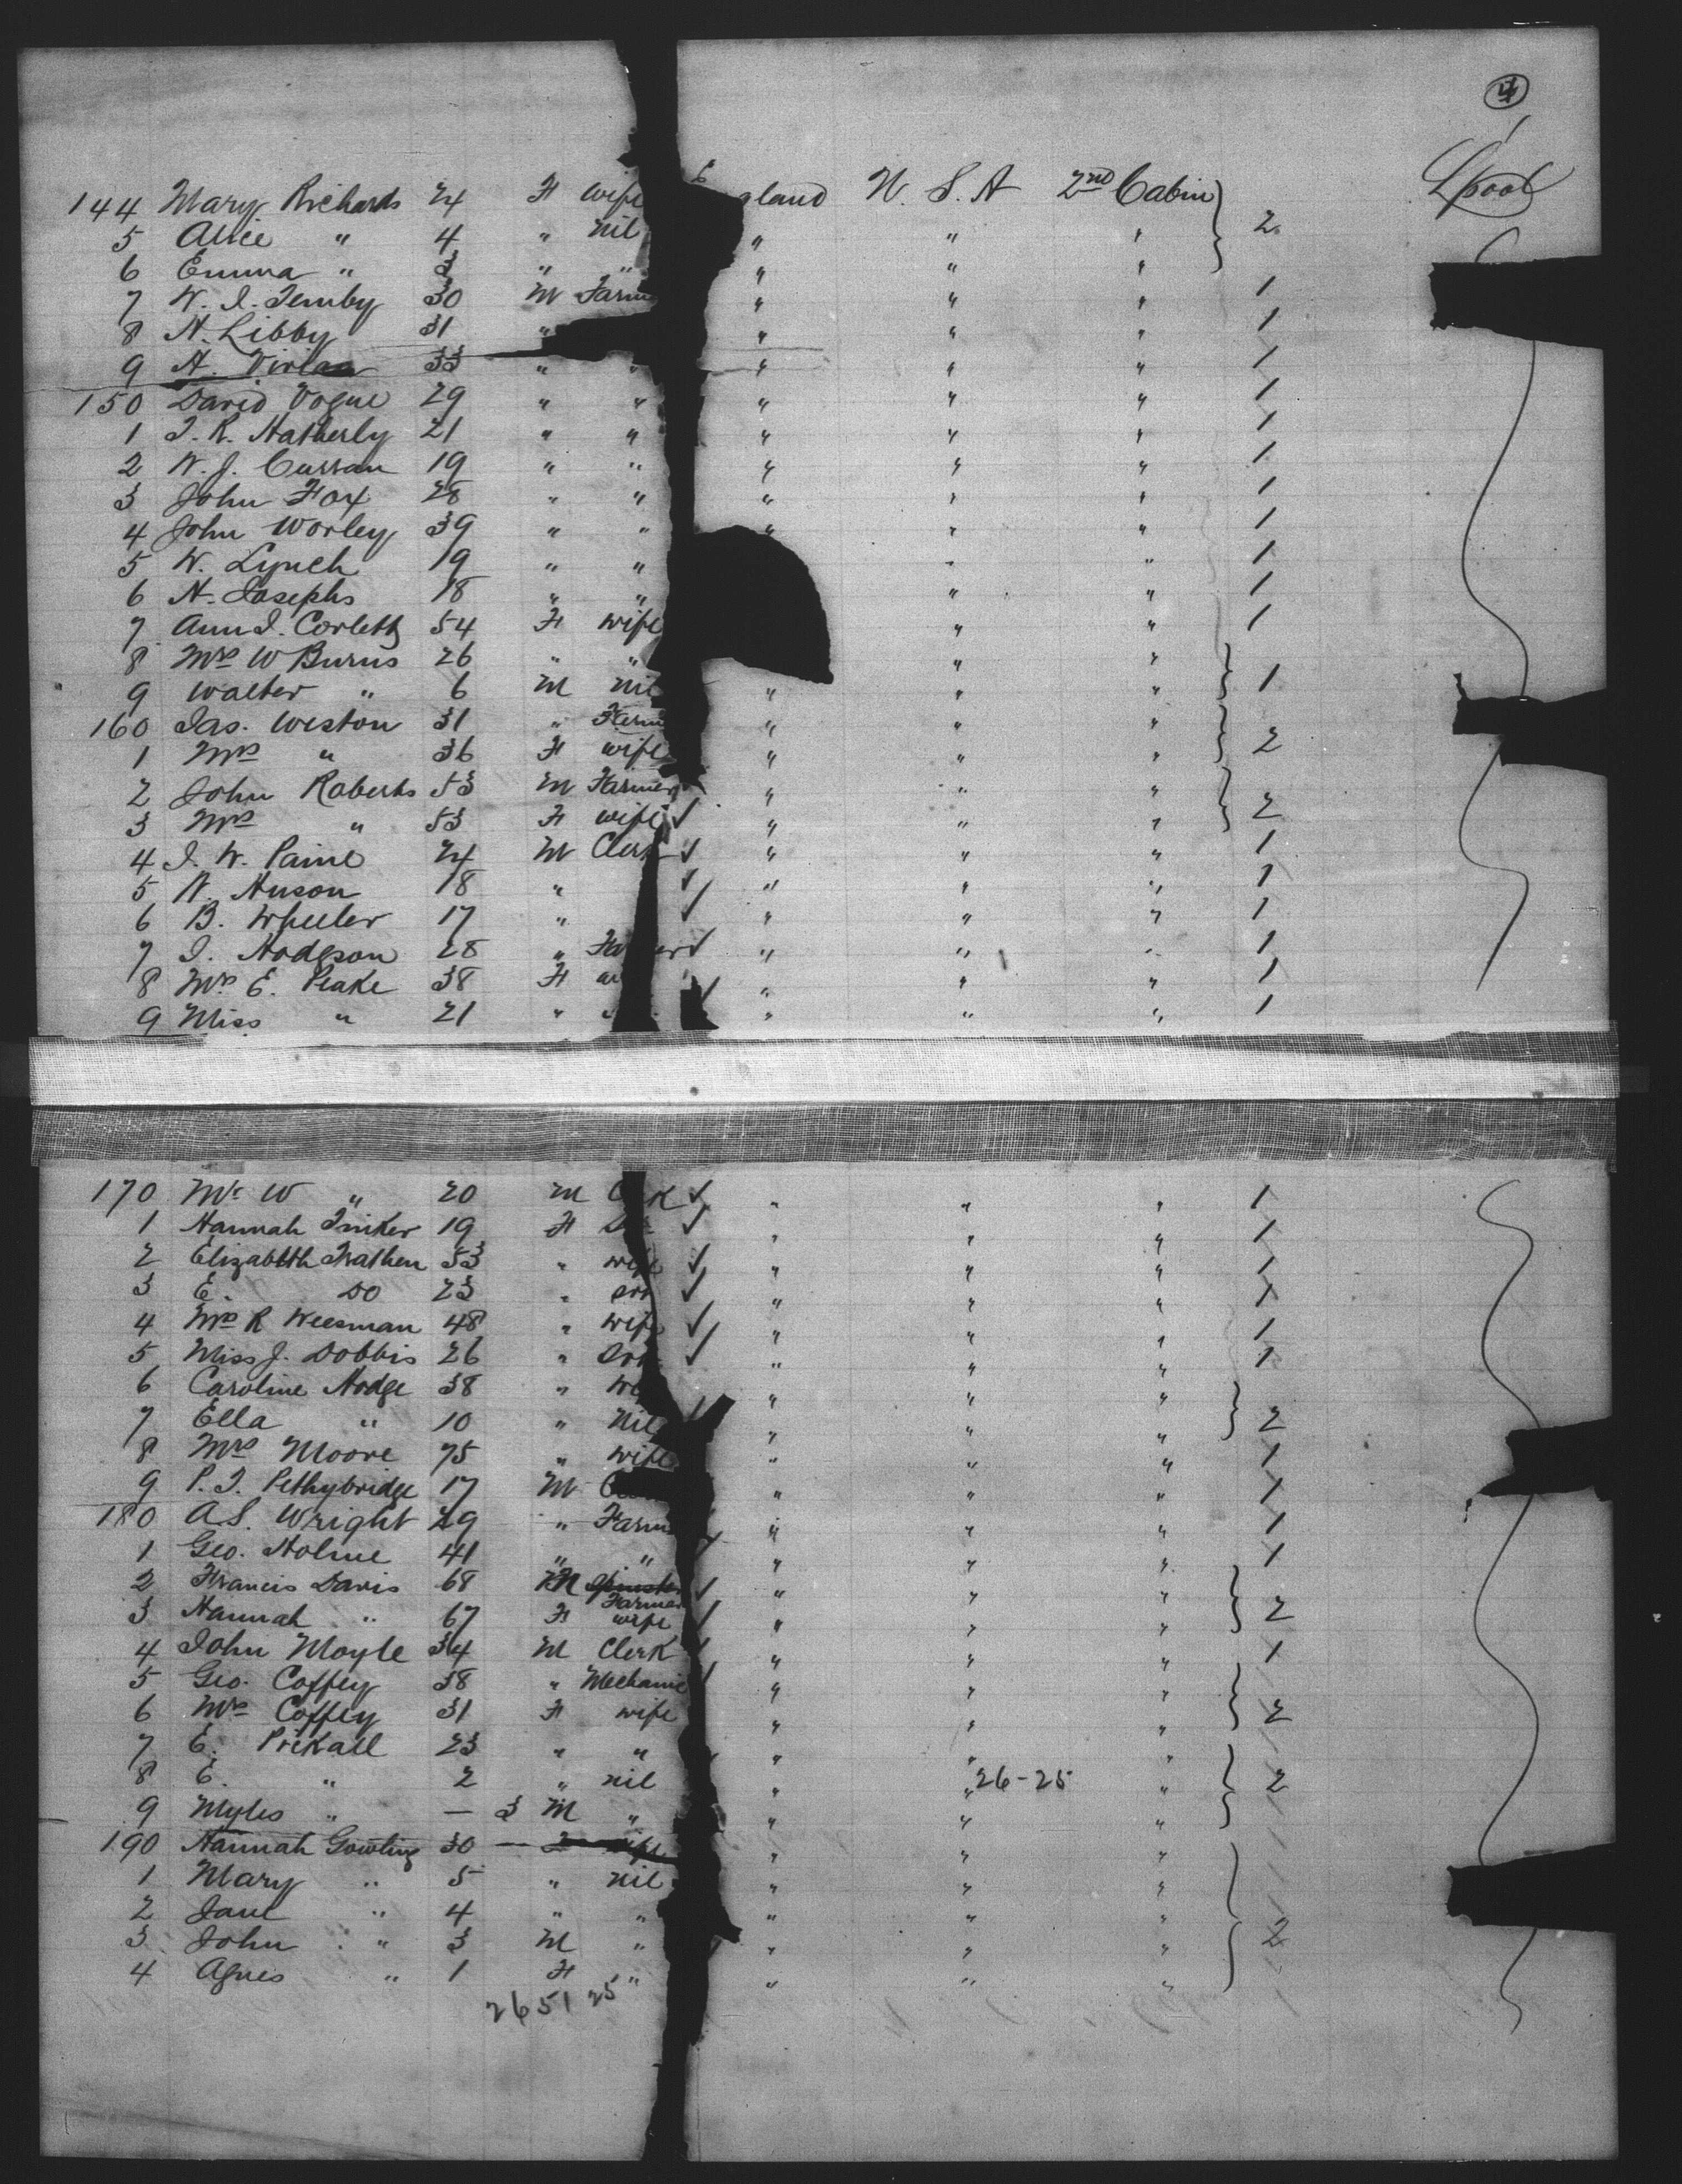 4
144 Mary Richards 24 F wife gland U. S. A 2nd Cabin 2 L'pool
5 Alice " 4 " nil " " "
6 Emma " 3 " " " " "
7 W. J. Temby 30 M Farm " " " 1
8 H. Libby 31 " " " " 1
9 H. 33 " " " " " 1
150 David Vogue 29 " " " " " 1
1 J. R. Hatherly 21 " " " " " 1
2 W. J. Curran 19 " " " " " 1
3 John Fox 28 " " " " " 1
4 John Worley 39 " " " " " 1
5 W. Lynch 19 " " " " 1
6 H. Josephs 18 " " " " 1
7 Ann J. Corlett 54 F wife " " 1
8 Mrs W Burns 26 " " " "
9 Walter " 6 M nil " " " 1
160 Jas. Weston 31 " Farm " " "
1 Mrs " 36 F wife " " " 2
2 John Roberts 53 M Farmer " " "
3 Mrs " 53 F wife ✓ " " " 2
4 J. W. Paine 24 M Clerk ✓ " " " 1
5 W. Huson 18 " ✓ " " " 1
6 B. Wheeler 17 " ✓ " " " 1
7 J. Hodgson 28 " Fa er ✓ " " " 1
8 Mrs E. Peake 38 F w ✓ " " " 1
9 Miss " 21 " " " " 1
170 Mr W " 20 M C k ✓ " " " 1
1 Hannah Tinker 19 F ✓ " " " 1
2 Elizabeth Trathen 53 " wife ✓ " " " 1
3 E. Do 23 " ✓ " " " 1
4 Mrs R Weesman 48 " wife ✓ " " " 1
5 Miss J. Dobbis 26 " ✓ " " " 1
6 Caroline Hodge 38 " w " " "
7 Ella " 10 " nil ✓ " " " 2
8 Mrs Moore 75 " wife " " " 1
9 P. J. Pethybridge 17 M " " " 1
180 A. S. Wright 29 " Farm " " " 1
1 Geo. Holme 41 " " " " " 1
2 Francis Davis 68 M Spinster ✓ " " "
Farmer
3 Hannah " 67 F wife ✓ " " " 2
4 John Moyle 34 M Clerk ✓ " " " 1
5 Geo. Coffey 38 " Mechanic ✓ " " "
6 Mrs Coffey 31 F wife " " " 2
7 E. Prikall 23 " " " " "
8 E. " 2 " nil " " 26-25 " 2
9 Myles " — 3 M " " " "
190 Hannah Gowling 30 — wife " " "
1 Mary " 5 " nil " " "
2 Jane " 4 " " " " "
3 John " 3 M " " " " 2
4 Agnes " 1 F " " " "
26 51 25